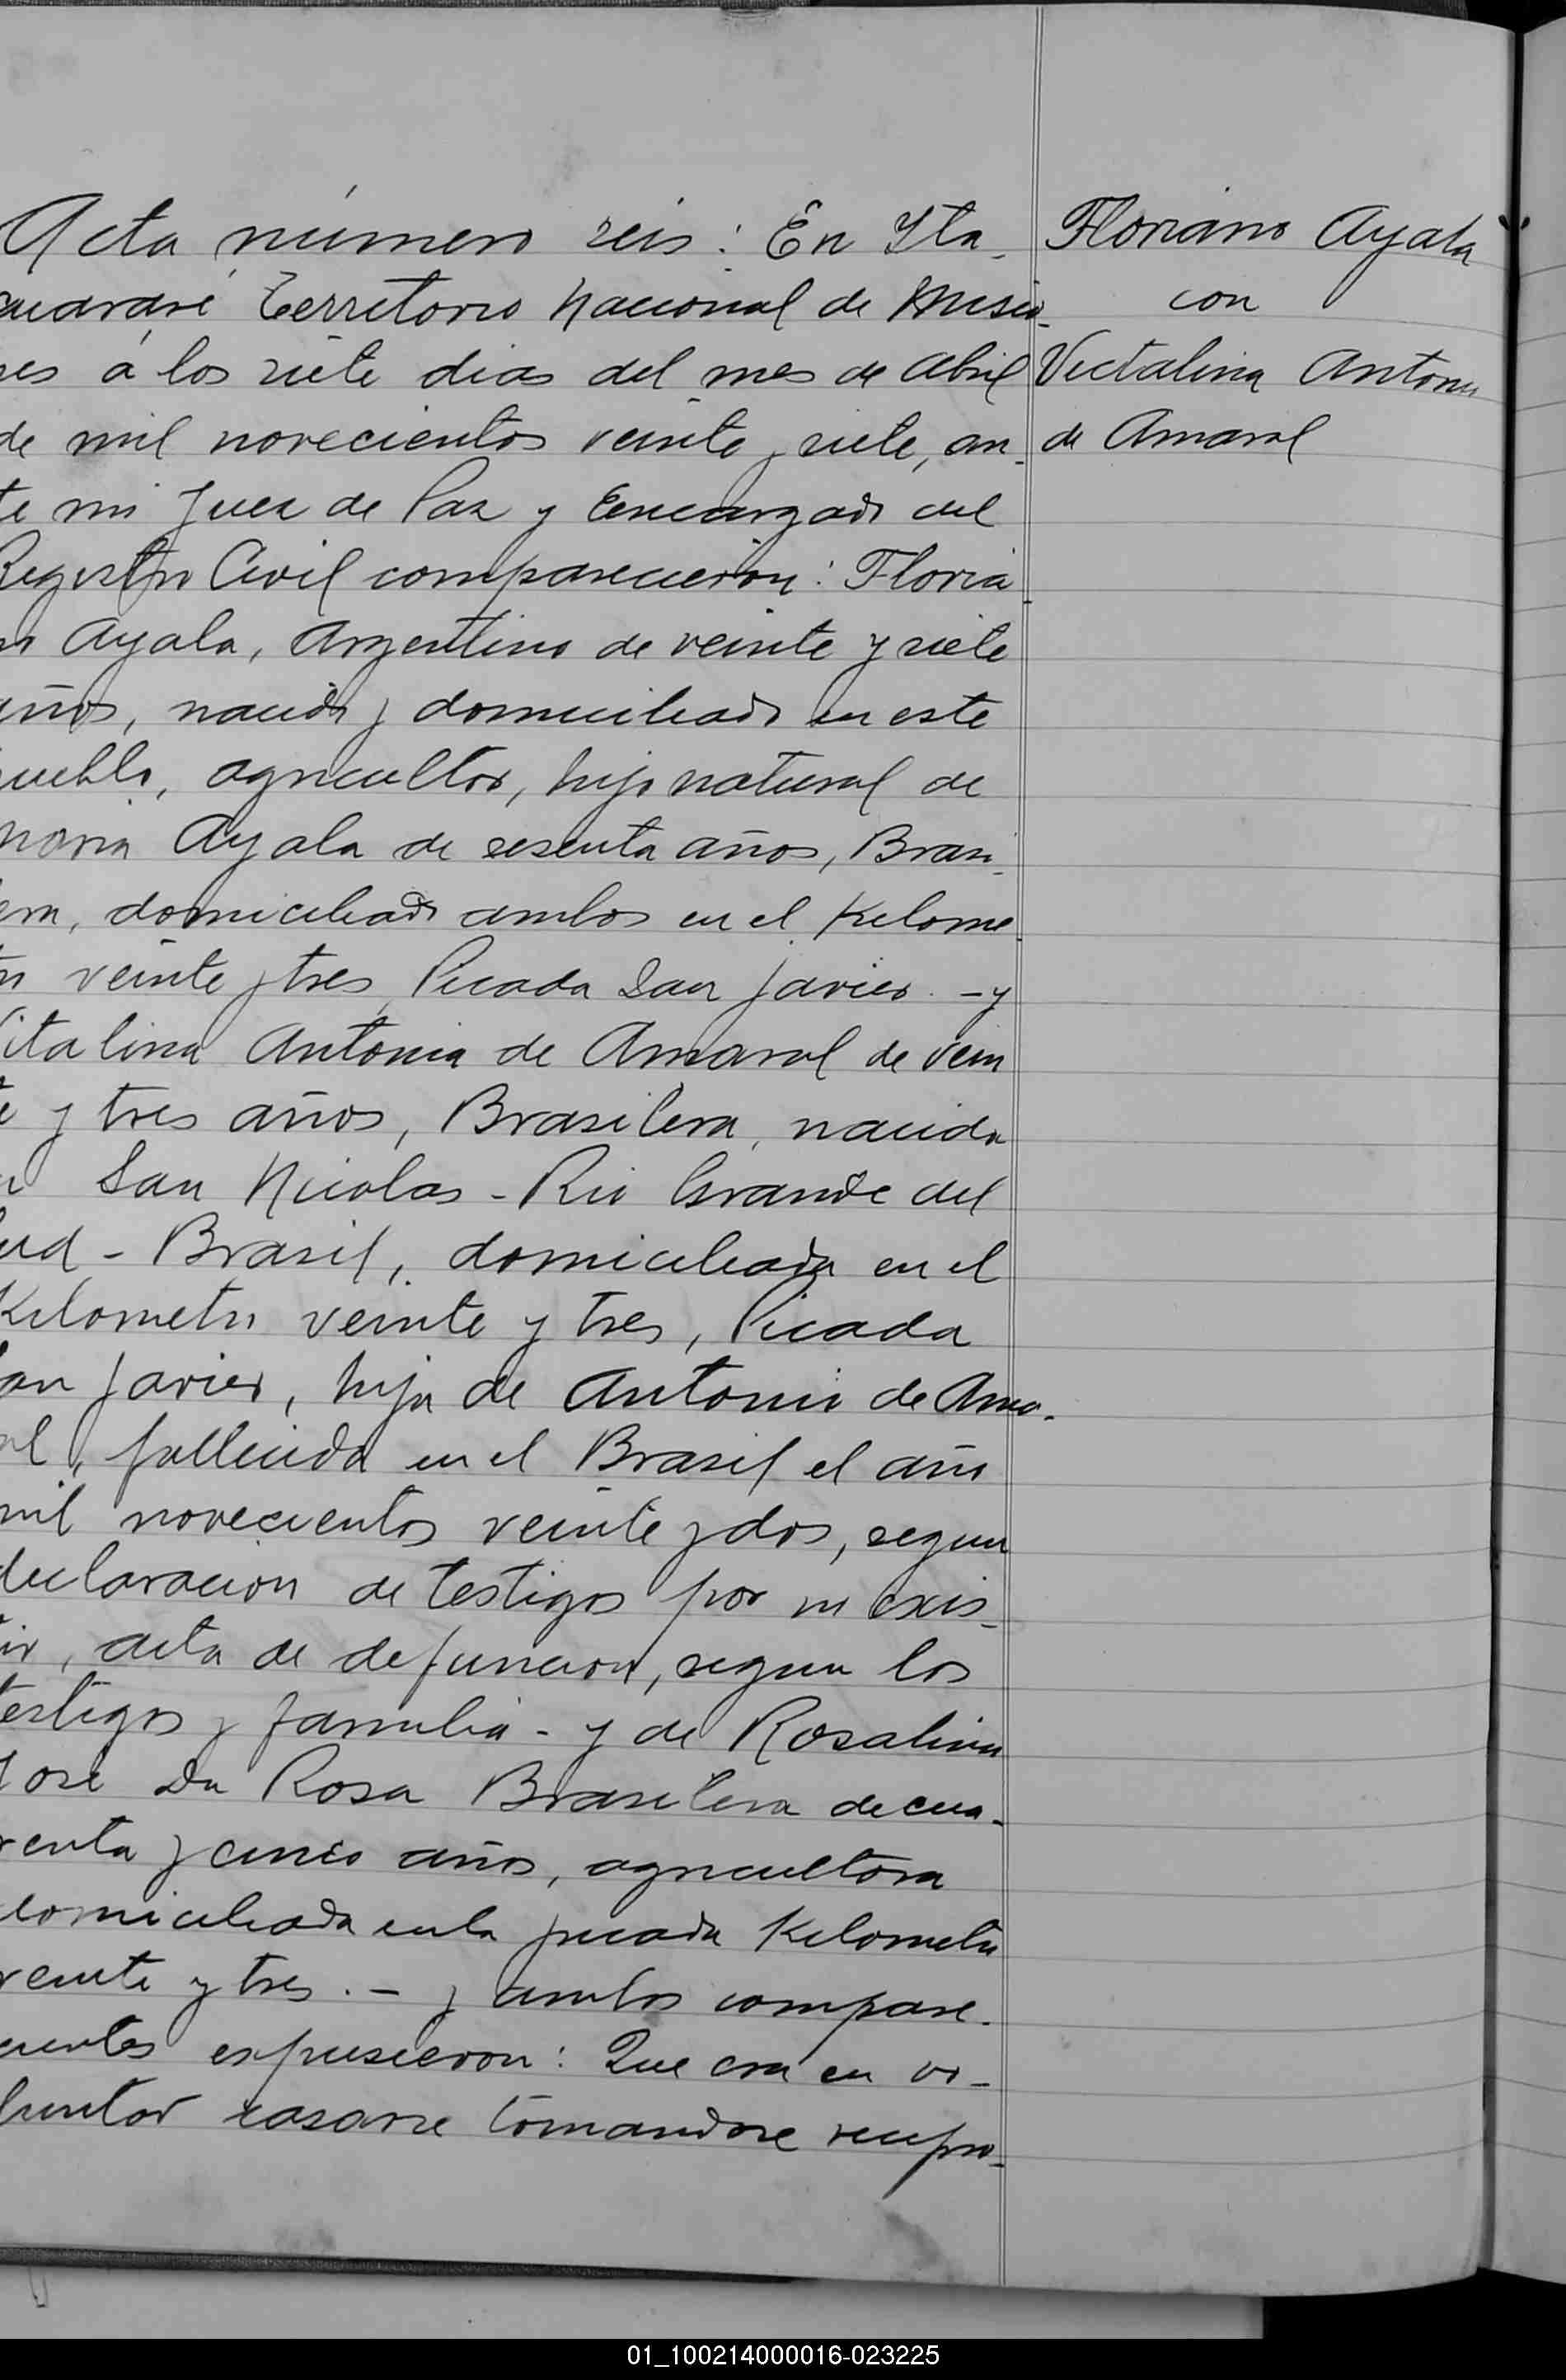 Acta número seis: En Ita-
cuararé Territorio Nacional de Misio-
nes á los siete dias del mes de abril
de mil novecientos veinte y siete, an-
te mi Juez de Paz y Encargado del
Registro Civil comparecieron: Floria-
no Ayala, Argentino de veinte y siete
años, nacido y domiciliado en este
pueblo, agricultor, hijo natural de
Ayala de sesenta años, Brasi-
lera, domiciliado ambos en el Kilome-
tro veinte y tres, Picada San Javier. - y
Vitalina Antonia de Amaral de vein
te y tres años, Brasilera, nacida
en San Nicolas - Rio Grande del
Sud - Brasil, domiciliada en el
Kilometro veinte y tres, Picada
San Javier, hija de Antonio de Ama-
ral, fallecido en el Brasil el año
mil novecientos veinte y dos, segun
declaracion de testigos por no exis-
tir, acta de defuncion, segun los
testigos y familia - y de Rosalina
José Da Rosa Brasilera de cua-
renta y cinco años, agricultora
domiciliada en la picada Kilometro
veinte y tres. - y ambos compare-
cientes expusieron: Que era su vo-
luntad casarse tomandose recipro-
Floriano Ayala
con
Victalina Antonia
de Amaral
01_100214000016-023225